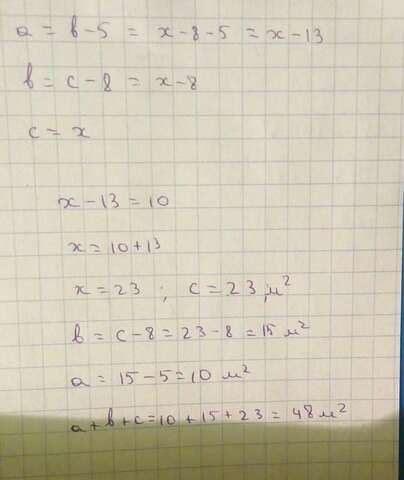 a = b - 5 = x - 8 - 5 = x - 13
b = c - 8 = x - 8
c = x
x - 13 = 10
x = 10 + 13
x = 23 ; c = 23 м²
b = c - 8 = 23 - 8 = 15 м²
a = 15 - 5 = 10 м²
a + b + c = 10 + 15 + 23 = 48 м²